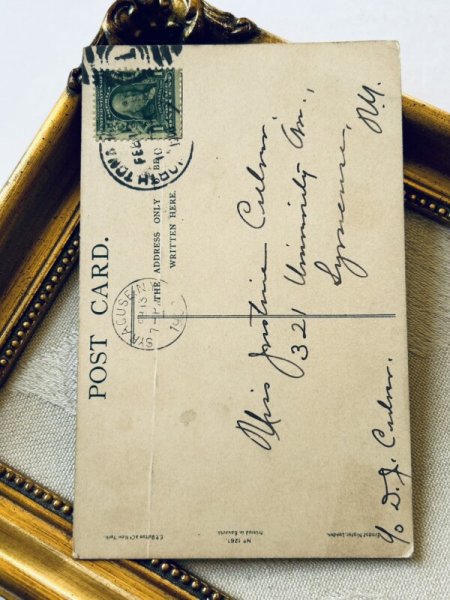 POST CARD.
THE ADDRESS ONLY
WRITTEN HERE.
FEB
SYRACUSE, N.Y.
7-P
Miss Justine Culver.
321 University Av.,
Syracuse,
N.Y.
c/o D. J. Culver.
E.P. Dutton & Co. New York.
Nº 1261.
Printed in Bavaria.
Ernest Nister, London.